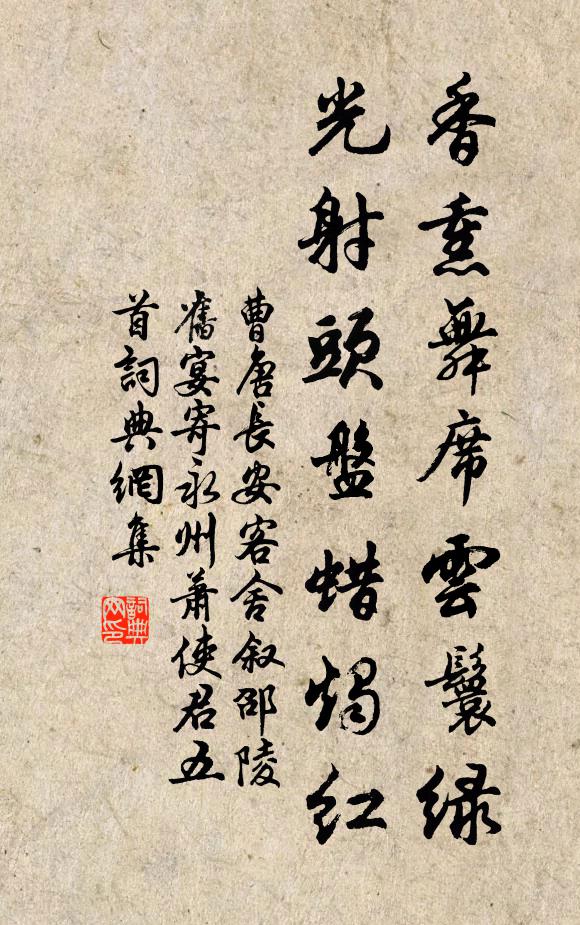 香熏舞席雲鬟綠
光射頭盤蜡燭紅
曹唐長安客舍叙邵陵
舊宴寄永州蕭使君五
首詞典網集
詞典
网印